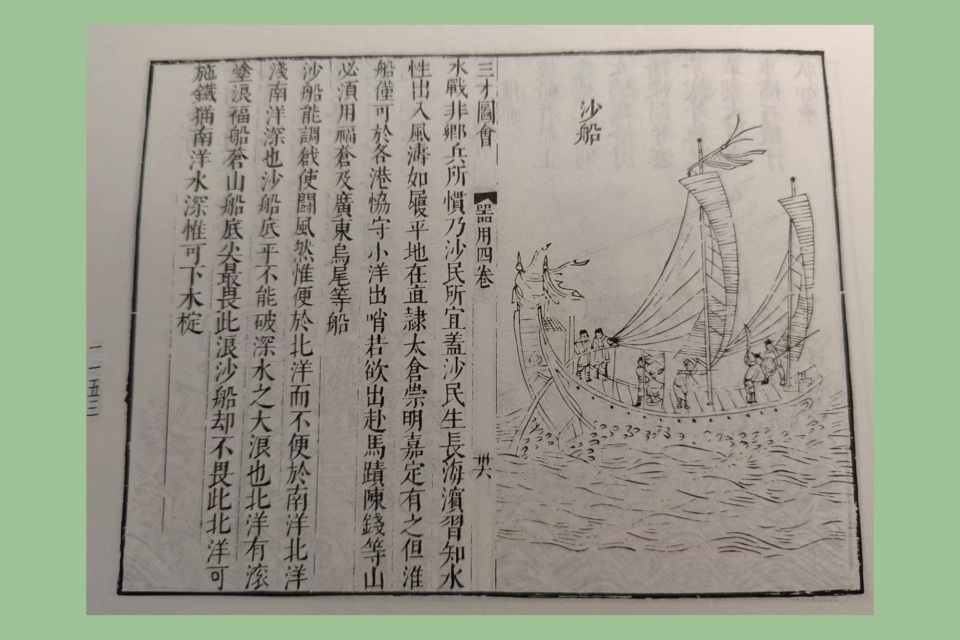 沙船
三才圖會 器用四卷 卅六
水戰非鄉兵所慣乃沙民所宜蓋沙民生長海濱習知水
性出入風濤如履平地在直隸太倉崇明嘉定有之但淮
船僅可於各港恊守小洋出哨若欲出赴馬蹟陳錢等山
必須用福蒼及廣東烏尾等船
沙船能調戧使鬪風然惟便於北洋而不便於南洋北洋
淺南洋深也沙船底平不能破深水之大浪也北洋有滚
塗浪福船蒼山船底尖最畏此浪沙船却不畏此北洋可
施鐵猫南洋水深惟可下木椗
一一五三